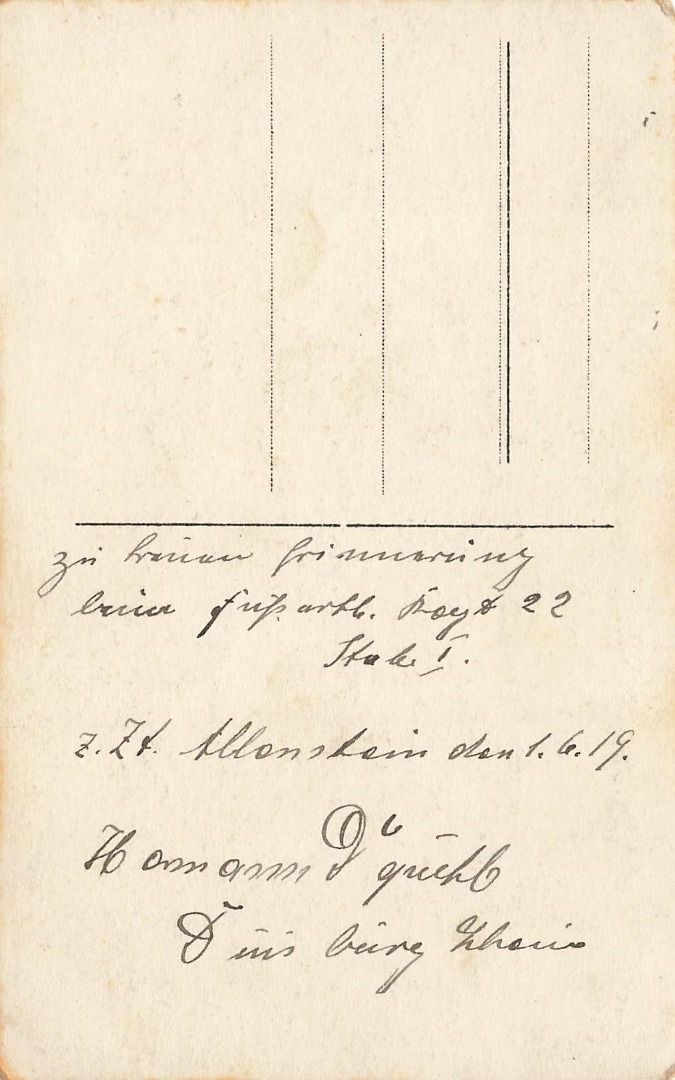 Zu treuen Erinnerung
beim Fußartl. Regt 22
Stab. I.
z. Zt. Allenstein den 1. 6. 19.
Duisburg Rhein